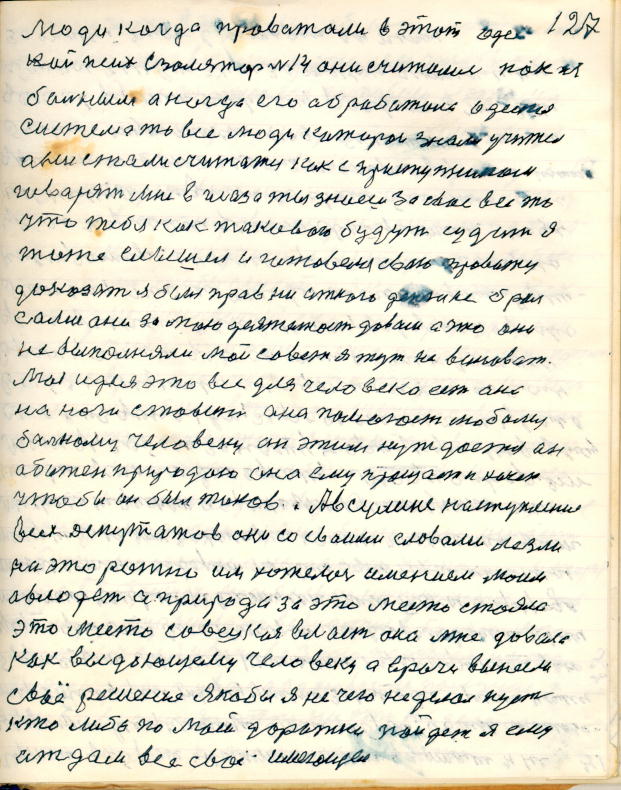 127
Люди когда проватали в этот одес
кой псих Изолятор N 14 они считали пок
балным а когда его обработала одеска
система то все люди каторои знали учител
али стали считати как с приступником
говарят мне в глаза ты знаеш за свое вес то
что тебя как таковаго будут судит я
тоже слышел и готовелся свою провоту
доказат я был прав ни аткого денги не брал
сами они за мою деятелност довали а то они
не выполняли мой совет я тут не виноват.
Моя идея это все для человека ест она
на ноги становит она помогает любому
балному человеку он этим нуждоется он
абижен природаю она ему прощает и хочет
чтобы он был таков. А в сулине наступление
всех депутатов они со своими словами лезли
на это ратно им хотелос имением моим
овлодет а природа за это место стояла
это место совецкая власт она мне довала
как выдающему человеку а врачи вынесли
своё решение Якобы я не чего не делал пуст
кто либо по моей дорожки пойдет я ему
атдам все своё имеющея